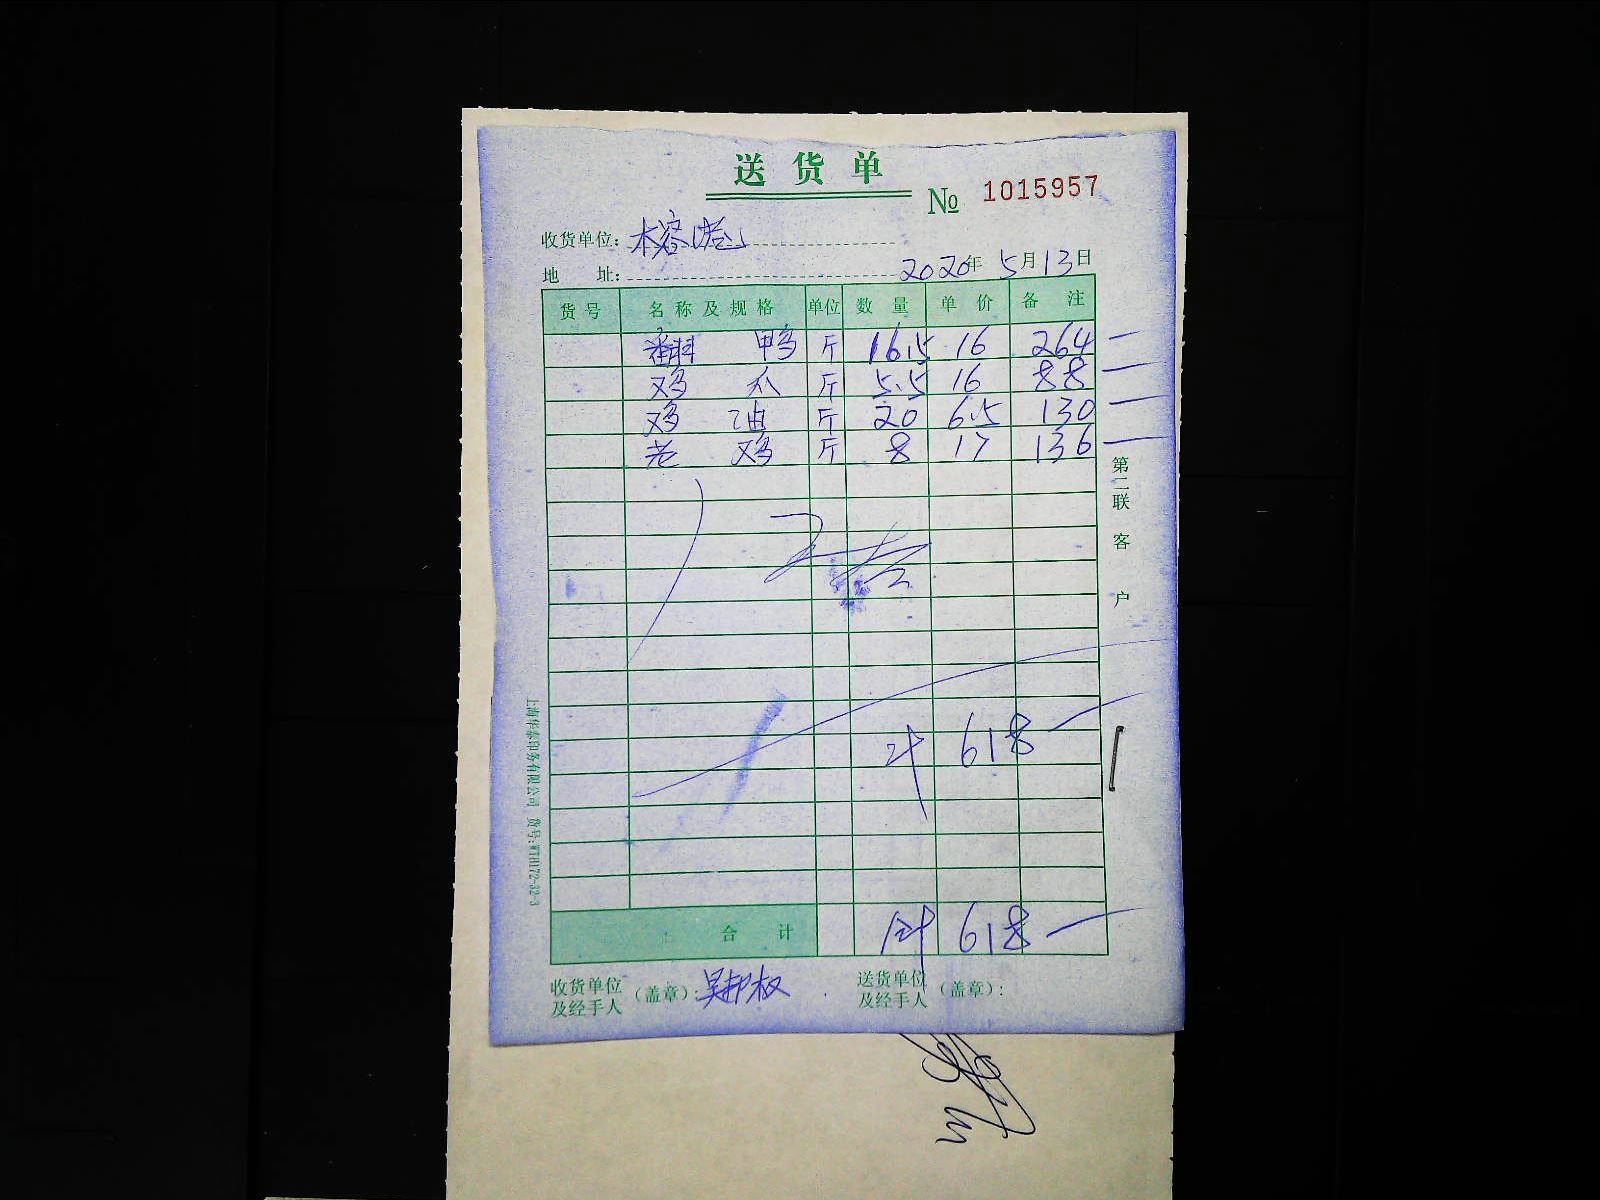 送货单
№ 1015957
收货单位：木容港
地 址： 2020年 5月13日
货号 名称及规格 单位 数量 单价 备注
鸭 斤 16.5 16 264
鸡 爪 斤 5.5 16 88
鸡 油 斤 20 6.5 130
老 鸡 斤 8 17 136
第二联 客户
计 618
合计 计 618
收货单位及经手人（盖章）： 送货单位及经手人（盖章）：
上海华泰印务有限公司 货号:WTH172-32-3